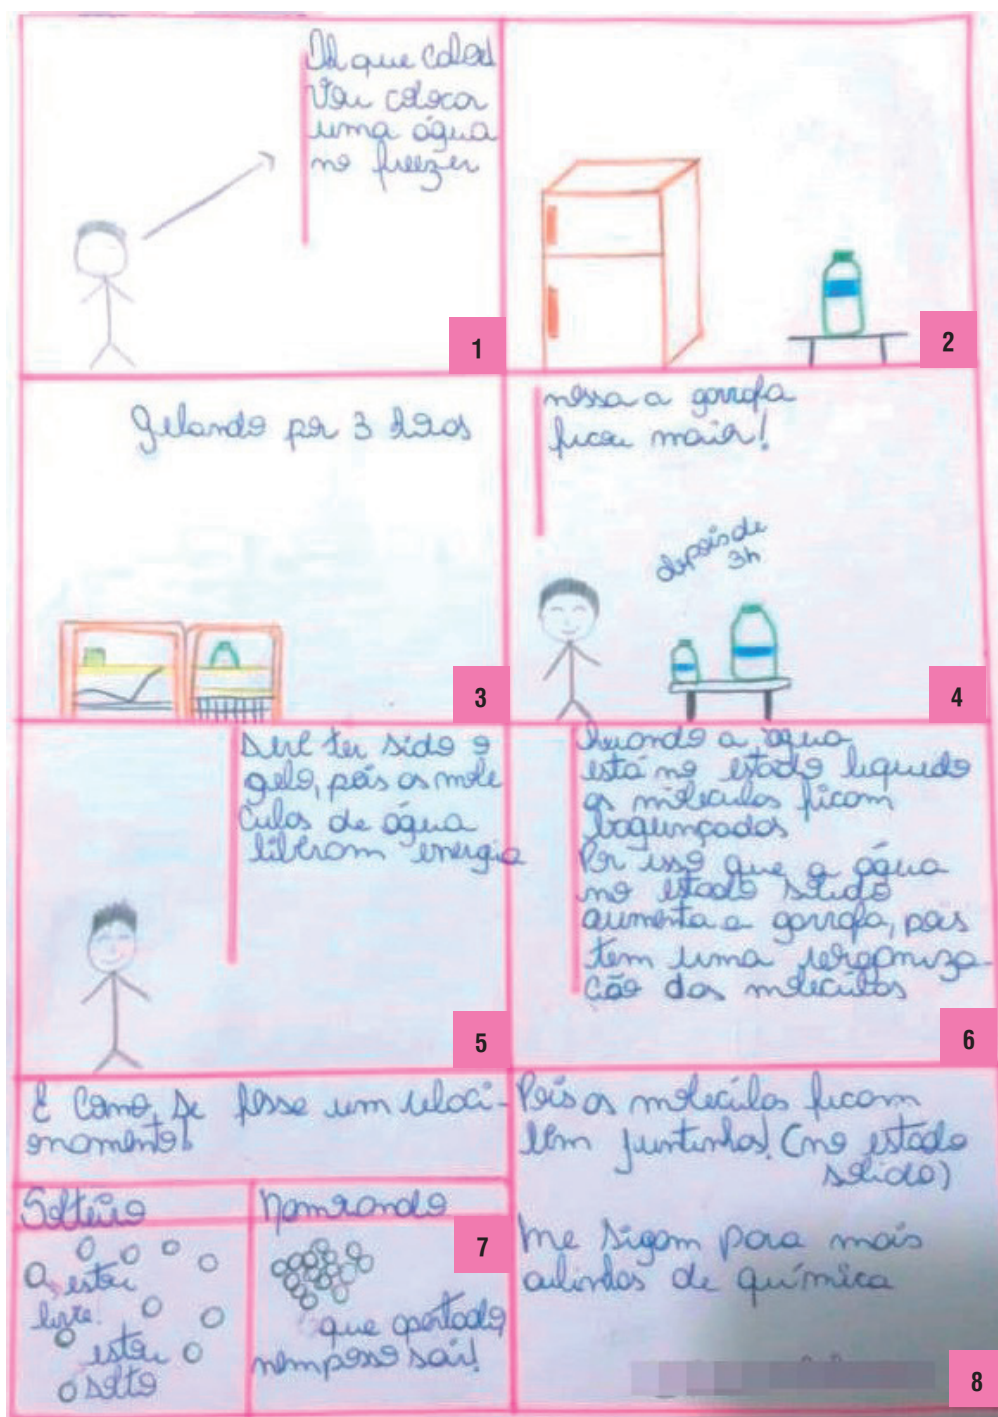 Oh que calor!
Vou colocar
uma água
no freezer
1
2
Gelando por 3 horas
3
nossa a garrafa
ficou maior!
depois de
3h
4
Deve ter sido o
gelo, pois as mole
culas de água
liberam energia
5
Quando a água
está no estado liquido
as moleculas ficam
bagunçadas
Por isso que a água
no estado solido
aumenta a garrafa, pois
tem uma reorganiza-
ção das moleculas
6
É como se fosse um relaci-
onamento!
Solteiro
Namorando
estou
livre!
estou
solto
que apertado
nem posso sair!
7
Pois as moleculas ficam
bem juntinhas! (no estado
solido)
Me sigam para mais
aulinhas de química
8